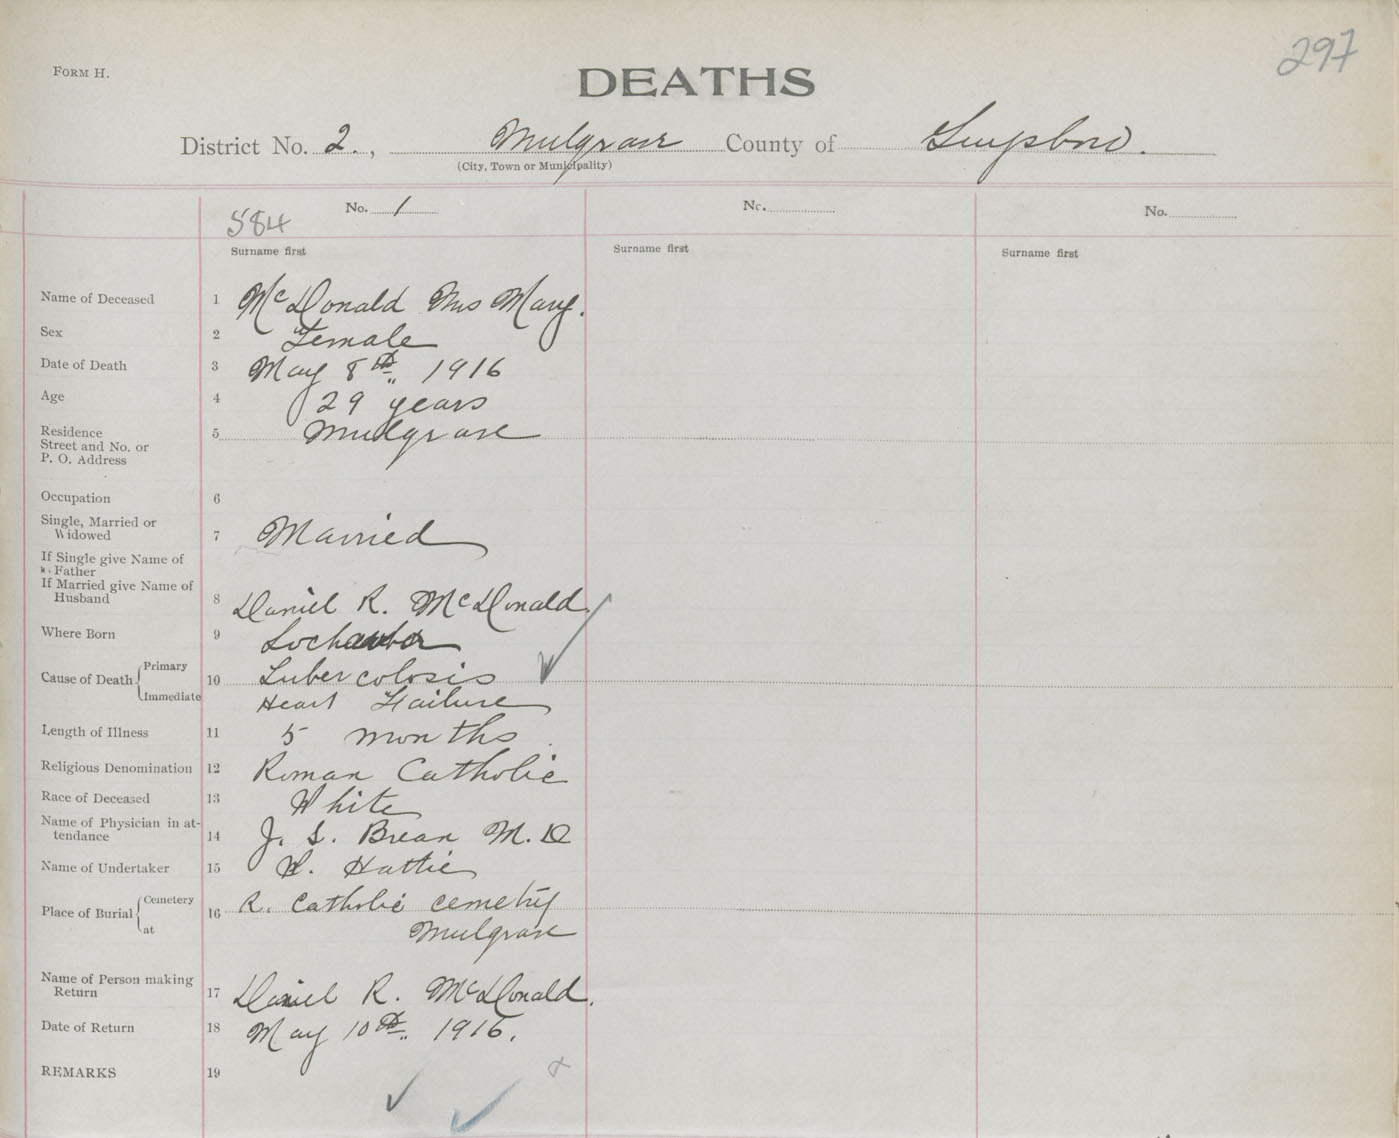 297
FORM H.
DEATHS
District No. 2., Mulgrave County of Guysboro.
(City, Town or Municipality)
584
No. 1
No.
No.
Surname first
Surname first
Surname first
Name of Deceased 1 McDonald Mrs Mary.
Sex 2 Female
Date of Death 3 May 8th, 1916
Age 4 29 years
Residence 5 Mulgrave
Street and No. or
P. O. Address
Occupation 6
Single, Married or
Widowed 7 Married
If Single give Name of
Father
If Married give Name of
Husband 8 Daniel R. McDonald.
Where Born 9 Lochaber
Cause of Death Primary 10 Tubercolosis
Immediate Heart Failure
Length of Illness 11 5 months.
Religious Denomination 12 Roman Catholic
Race of Deceased 13 White
Name of Physician in at-
tendance 14 J. S. Brean M.D
Name of Undertaker 15 Hattie
Place of Burial Cemetery 16 R. Catholic cemetry
at Mulgrave
Name of Person making
Return 17 Daniel R. McDonald.
Date of Return 18 May 10th, 1916.
REMARKS 19